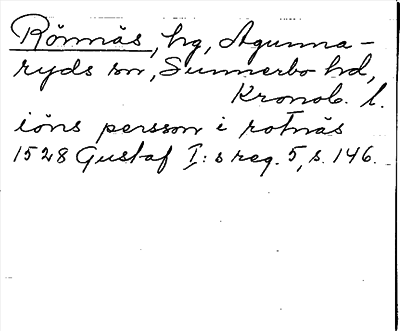 Rönnäs, hg, Agunna-
ryds sn, Sunnerbo hd,
Kronob. l.
iöns persson i rotnäs
1528 Gustaf I:s reg. 5, s. 146.